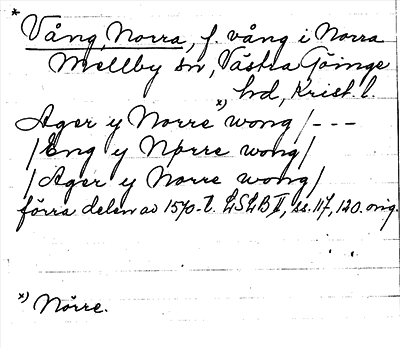 * Vång, Norra, f. vång i Norra
Mellby sn, Västra Göinge
hd, Krist. l.
Ager y Norre x) wong /---
/Eng y Nørre wong/
/Ager y Norre wong/
förra delen av 1570-t. LSLB II, ss. 117, 120. orig.
x) Nörre.